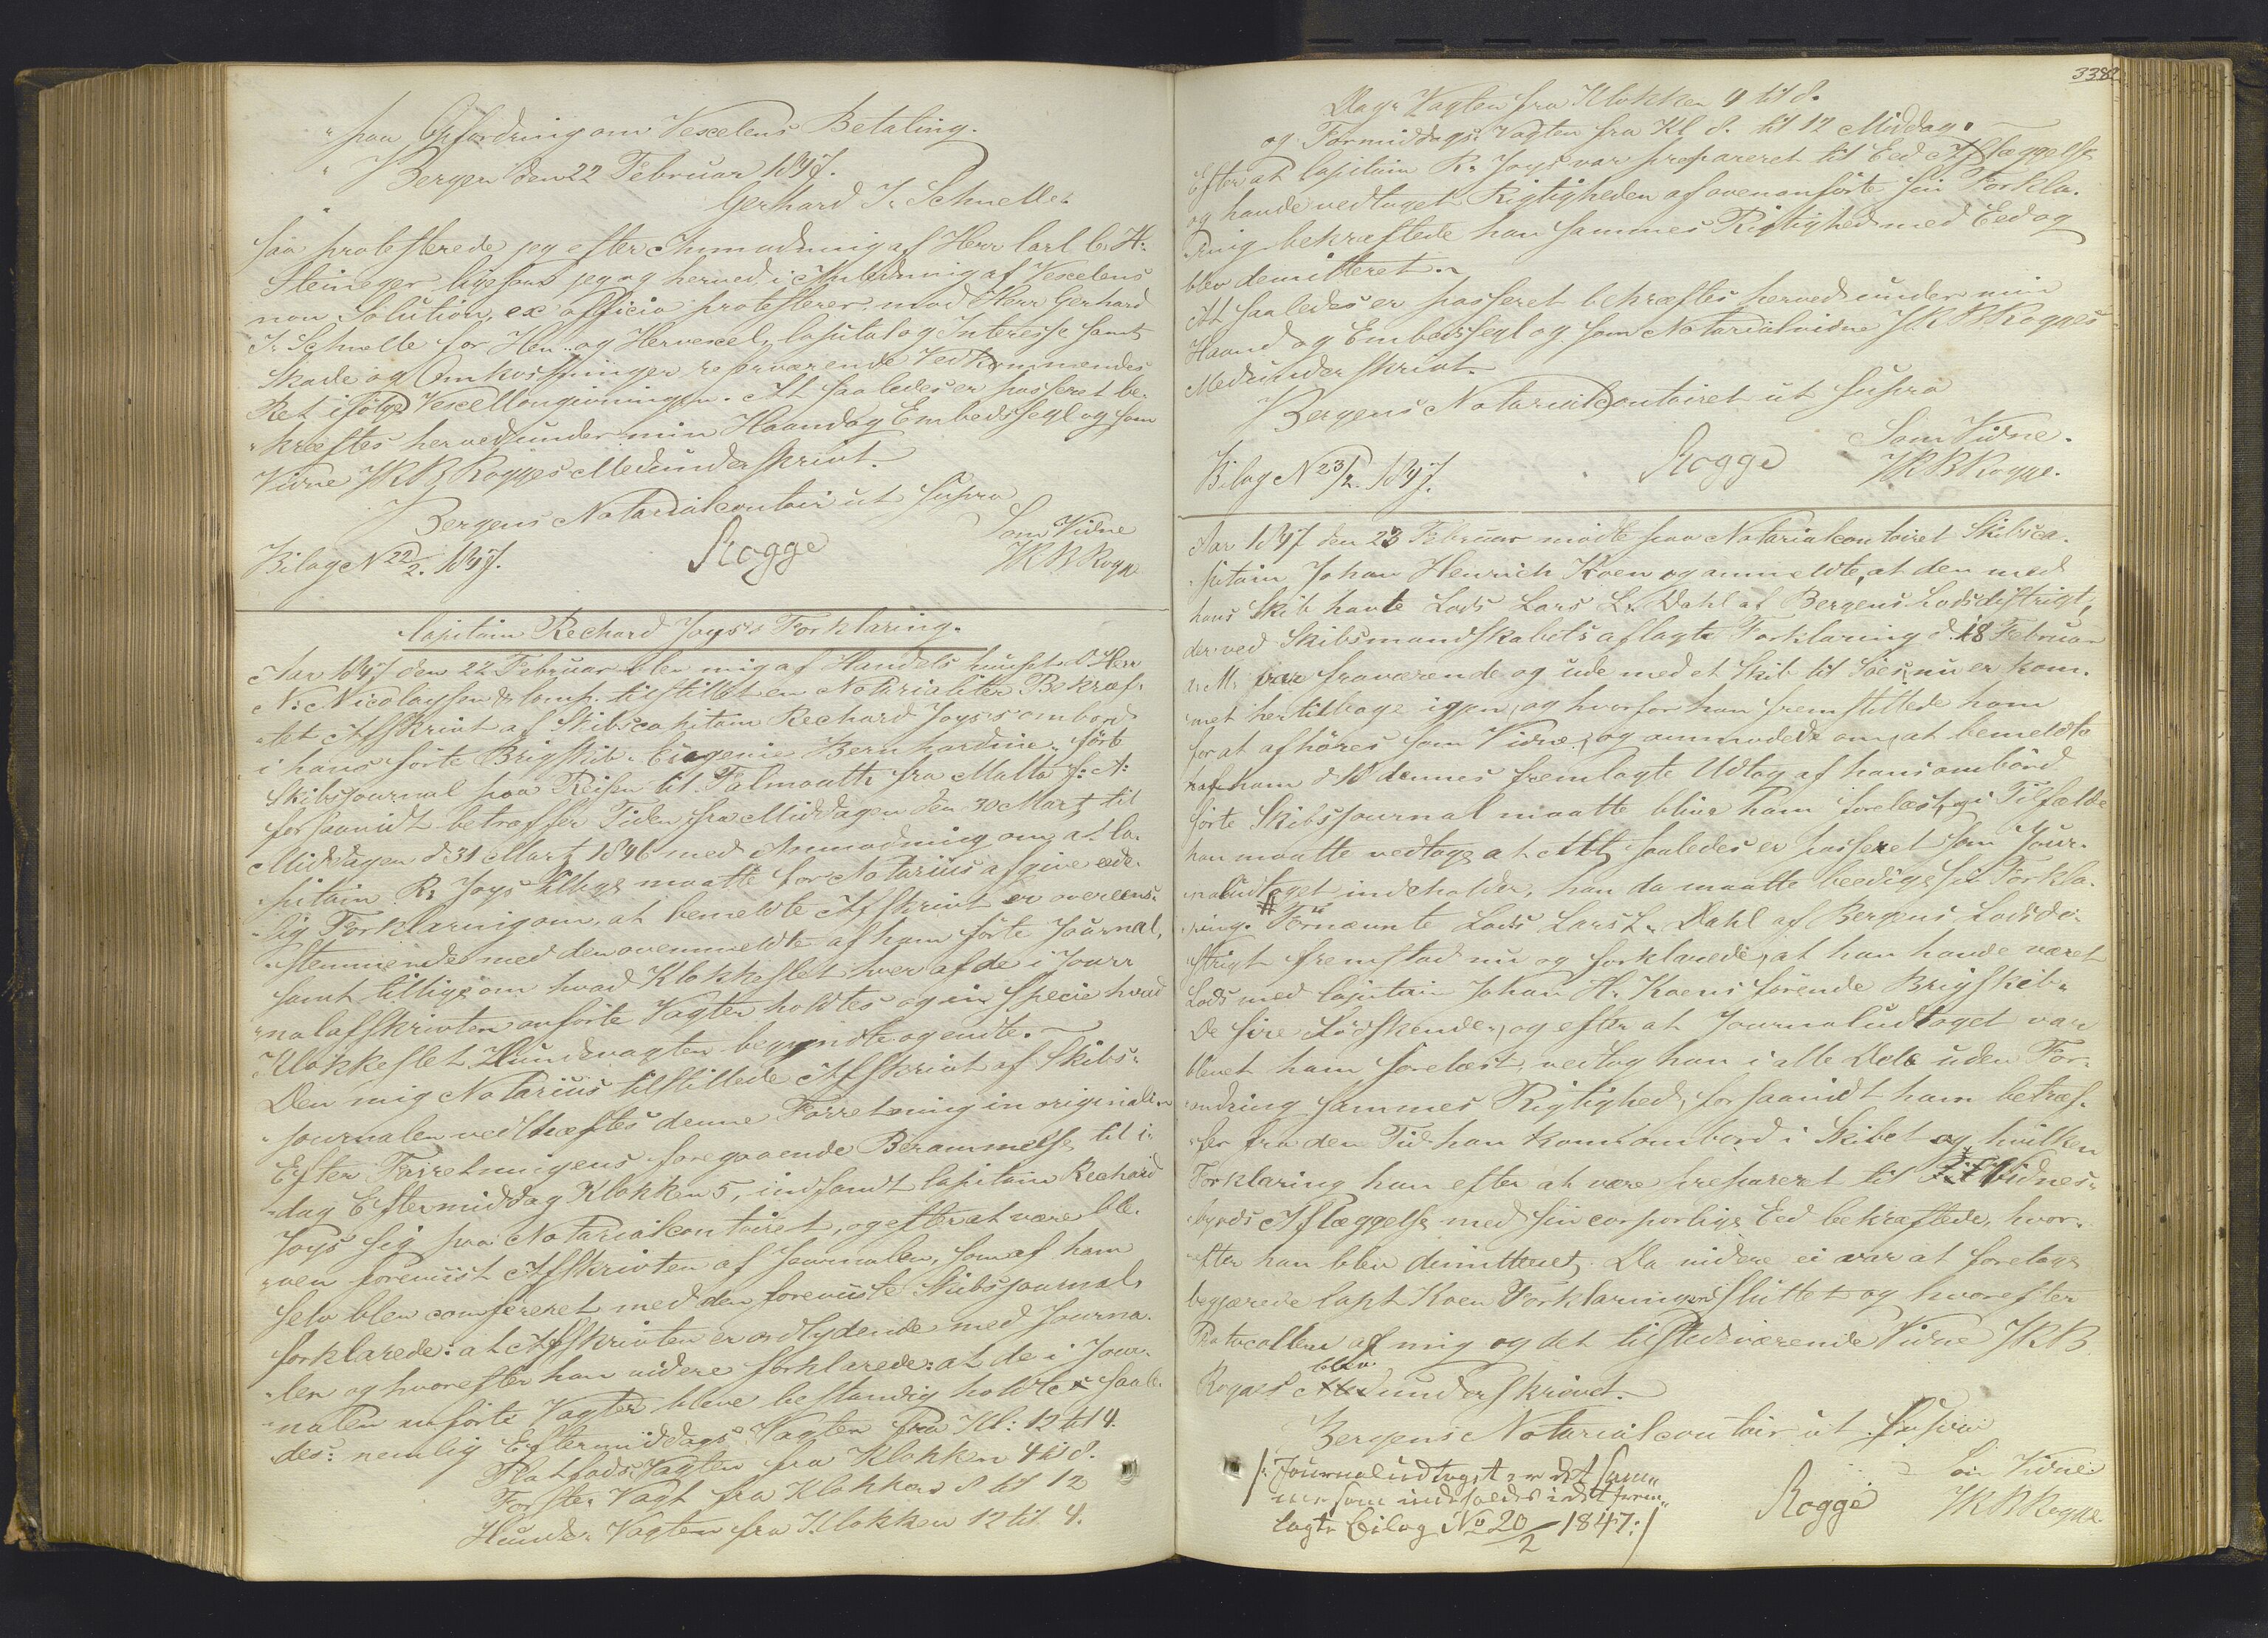 "paa Opfordring om Vexelens Betaling.
" Bergen den 22 Februar 1847.
Gerhard J. Schnelle.
saa protesterede jeg efter Anmodning af Herr Carl C. H:
Steineger ligesom jeg og herved i Anledning af Vexelens
non Solution, ex officio protesterer mod Herr Gerhard
J. Schnelle for Hen- og Hervexel, Capital og Interesse samt
Skade og Omkostninger reserverende Vedkommendes
Ret ifölge Vexellovgivningen. At saaledes er passeret be-
"kræftes herved under min Haand og Embedssegl og som
Vidne J K B Rogges Medunderskrivt.
Bergens Notarialcontoir ut supra
Som Vidne
Bilag N 22/2. 1847. Rogge J K B Rogge
Capitain Rechard Joys's Forklaring.
Aar 1847 den 22 Februar blev mig af Handelshuuset d'Herr
N: Nicolaysen & Comp. tilstillet en Notarialiter Bekræf-
"tet Afskrivt af Skibscapitain Rechard Joys's ombord
i hans förte Brigskib "Eugenie Bernhardine" förte
Skibsjournal paa Reisen til Falmouth fra Malta f: A:
forsaavidt betræffer Tiden fra Middagen den 30 Martz til
Middagen d 31 Martz 1846 med Anmodning om at Ca-
"pitain R. Joys tillige maatte for Notarius afgive eede-
"lig Forklaring om, at bemeldte Afskrivt er overeens-
"stemmende med den ovenmeldte af ham förte Journal,
samt tillige om hvad Klokkeslet hver af de i Jour-
"nalafskrivten anförte Vagter holdtes og in specie hvad
Klokkeslet Hundevagten begyndte og endte.
Den mig Notarius tilstillede Afskrivt af Skibs-
"journalen vedhæftes denne Forretning in originali.
Efter Forretningens foregaaende Berammelse til i
"dag Eftermiddag Klokken 5, indfandt Capitain Rechard
Joys sig paa Notarialcontoiret, og efter at være ble-
"ven foreviist Afskrivten af Journalen, som af ham
selv blev confereret med den foreviiste Skibsjournal,
forklarede: at Afskrivten er ordlydende med Journa-
"len og hvorefter han videre forklarede: at de i Jour-
"nalen anförte Vagter bleve bestandig holdte saale-
"des: nemlig Eftermiddags Vagten fra Kl: 12 til 4.
Platfods Vagten fra Klokken 4 til 8.
Förste Vagt fra Klokken 8 til 12
Hunde Vagten fra Klokken 12 til 4.
338
Dag Vagten fra Klokken 4 til 8.
og Formiddags Vagten fra Kl 8. til 12 Middag.
Efter at Capitain R. Joys var præpareret til Eed Aflæggelse
og havde vedtaget Rigtigheden af ovenanförte sin Forkla-
"ring bekræftede han sammes Rigtighed med Eed og
blev demitteret.
At saaledes er passeret bekræftes herved under min
Haand og Embedssegl og som Notarialvidne J K B. Rogges
Medunderskrivt.
Bergens Notarialcontoiret ut supra
Som Vidne.
Bilag N 23/2. 1847. Rogge J K B Rogge.
Aar 1847 den 23 Februar mödte paa Notarialcontoiret Skibsca-
"pitain Johan Henrich Koen og anmeldte, at den med
hans Skib havte Lods Lars L. Dahl af Bergens Lodsdistrigt,
der ved Skibsmandskabets aflagte Forklaring d. 18 Februar
d. M. var fraværende og ude med et Skib til Söes, nu er kom-
met hertilbage igjen, og hvorfor han fremstillede ham
for at afhöres som Vidne, og anmodede om, at bemeldte
af ham d 18 dennes fremlagte Udtog af hans ombord
förte Skibsjournal maatte blive ham forelæst, og i Tilfælde
han maatte vedtage at Alt saaledes er passeret som Jour-
naludtoget indeholder, han da maatte beedige sin Forkla-
"ring. # Fornævnte Lods Lars L. Dahl af Bergens Lodsdi-
strigt fremstod nu og forklarede, at han havde været
Lods med Capitain Johan H. Koens förende Brigskib
De fire Södskende, og efter at Journaludtoget var
blevet ham forelæst, vedtog han i alle Dele uden For-
"andring sammes Rigtighed, forsaavidt ham betræf-
"fer fra den Tid han kom ombord i Skibet og hvilken
Forklaring han efter at være præpareret til Vidnes-
"byrds Aflæggelse med sin corporlige Eed bekræftede, hvor-
"efter han blev dimitteret. Da videre ei var at foretage
begjærede Capt Koen Forklaringen sluttet og hvorefter
Protocollen af mig og det tilstedeværende Vidne J K B.
Rogges blev underskrevet.
Bergens Notarialcontoir ut supra
Som Vidne
Rogge J K B Rogge.
/: Journaludtoget er det sam-
me som indeholdes i det frem-
lagte Bilag No 20/2 1847:/